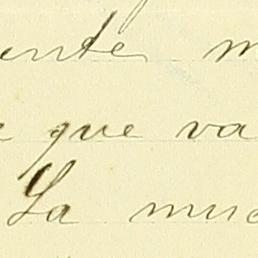 ente m
e que va
La muc